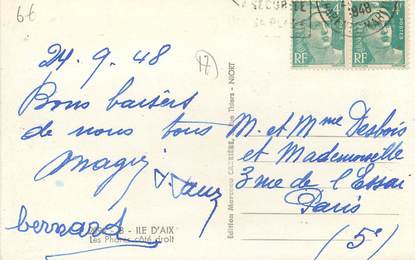 6€
17
24.9.48
Bons baisers
de nous tous
Magiy
bernard
ILE D'AIX
Les Phares côté droit
Edition Marceau CARRIÈRE, Thiers - NIORT
RF 4F POSTES
RF 4F
1948
M. et Mme Desbois
et Mademoiselle
3 rue de l'Essai
Paris
(5e)